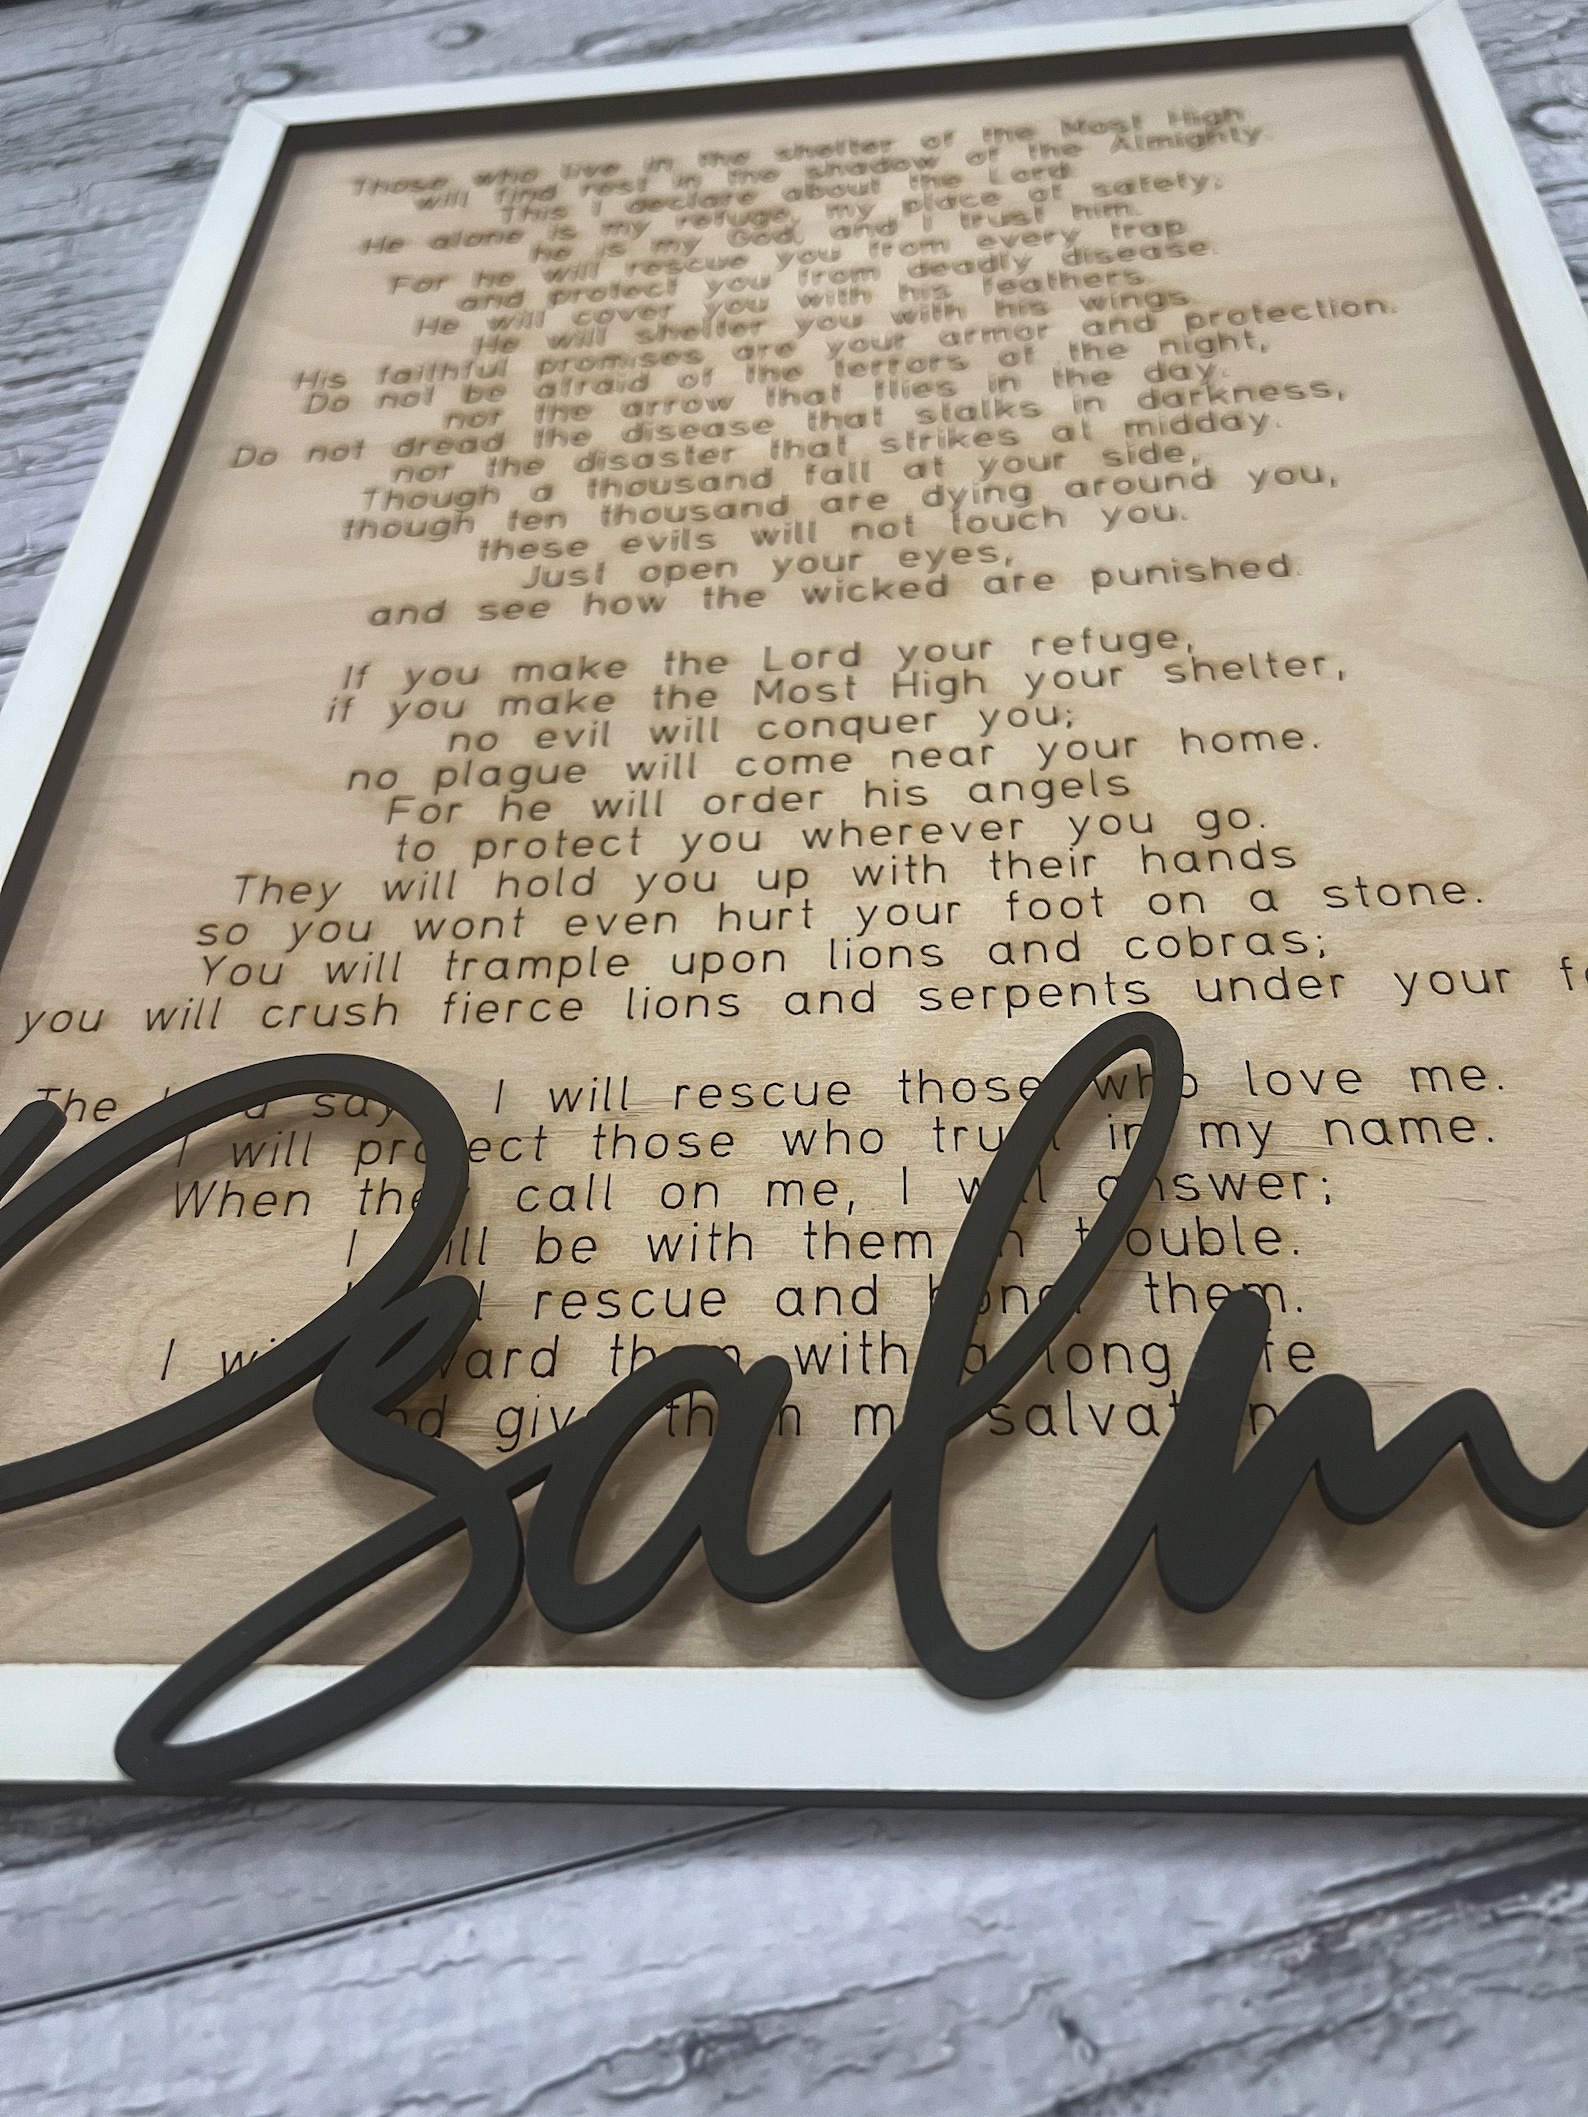 Those who live in the shelter of the Most High
will find rest in the shadow of the Almighty.
This I declare about the Lord:
He alone is my refuge, my place of safety;
he is my God, and I trust him.
For he will rescue you from every trap
and protect you from deadly disease.
He will cover you with his feathers.
He will shelter you with his wings.
His faithful promises are your armor and protection.
Do not be afraid of the terrors of the night,
nor the arrow that flies in the day.
Do not dread the disease that stalks in darkness,
nor the disaster that strikes at midday.
Though a thousand fall at your side,
though ten thousand are dying around you,
these evils will not touch you.
Just open your eyes,
and see how the wicked are punished.
If you make the Lord your refuge,
if you make the Most High your shelter,
no evil will conquer you;
no plague will come near your home.
For he will order his angels
to protect you wherever you go.
They will hold you up with their hands
so you wont even hurt your foot on a stone.
You will trample upon lions and cobras;
you will crush fierce lions and serpents under your
The says I will rescue those who love me.
I will protect those who trust in my name.
When they call on me, I will answer;
I will be with them in trouble.
rescue and honor them.
I will them with a long life
and give them my salvation
Psalm